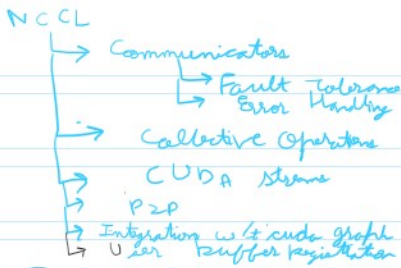 NCCL
Communicators
Fault Tolerance
Error Handling
Collective Operations
CUDA streams
P2P
Integration w/t cuda graph
User Buffer Registration